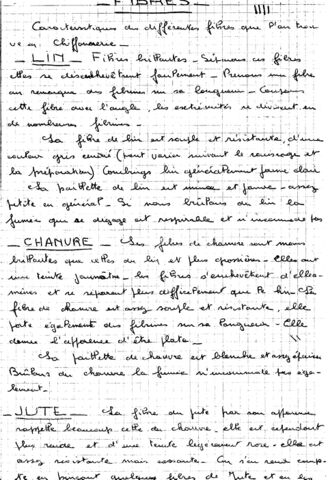 FIBRES
Caractéristiques des différentes fibres que l'on trou
ve en Chiffonnerie -
- LIN - Fibres brillantes - Séparons ces fibres
elles se désenchevêtrent facilement - Prenons une fibre
on remarque des fibrines sur sa longueur - Coupons
cette fibre avec l'ongle, les extrémités se divisent en
de nombreuses fibrines -
La fibre de lin est souple et résistante, d'une
couleur gris cendré (peut varier suivant le rouissage et
la préparation) lin généralement jaune clair
La paillette de lin est mince et jaune - assez
petite en général - Si nous brûlons du lin la
fumée qui se dégage est respirable et n'incommode pas
- CHANVRE - Les fibres de chanvre sont moins
brillantes que celles du lin et plus grossières - Elles ont
une teinte jaunâtre - les fibres s'enchevêtrent d'elles-
mêmes et se séparent plus difficilement que le lin - La
fibre de chanvre est assez souple et résistante, elle
porte également des fibrines sur sa longueur - Elle
donne l'apparence d'être plate -
La paillette de chanvre est blanche et assez
Brûlons du chanvre la fumée n'incommode pas éga-
lement -
- JUTE - La fibre du jute par son apparence
rappelle beaucoup celle du chanvre, elle est cependant
plus raide et d'une teinte légèrement rose - elle est
assez résistante mais cassante - On s'en rend comp-
te en pinçant quelques fibres de Jute et en les